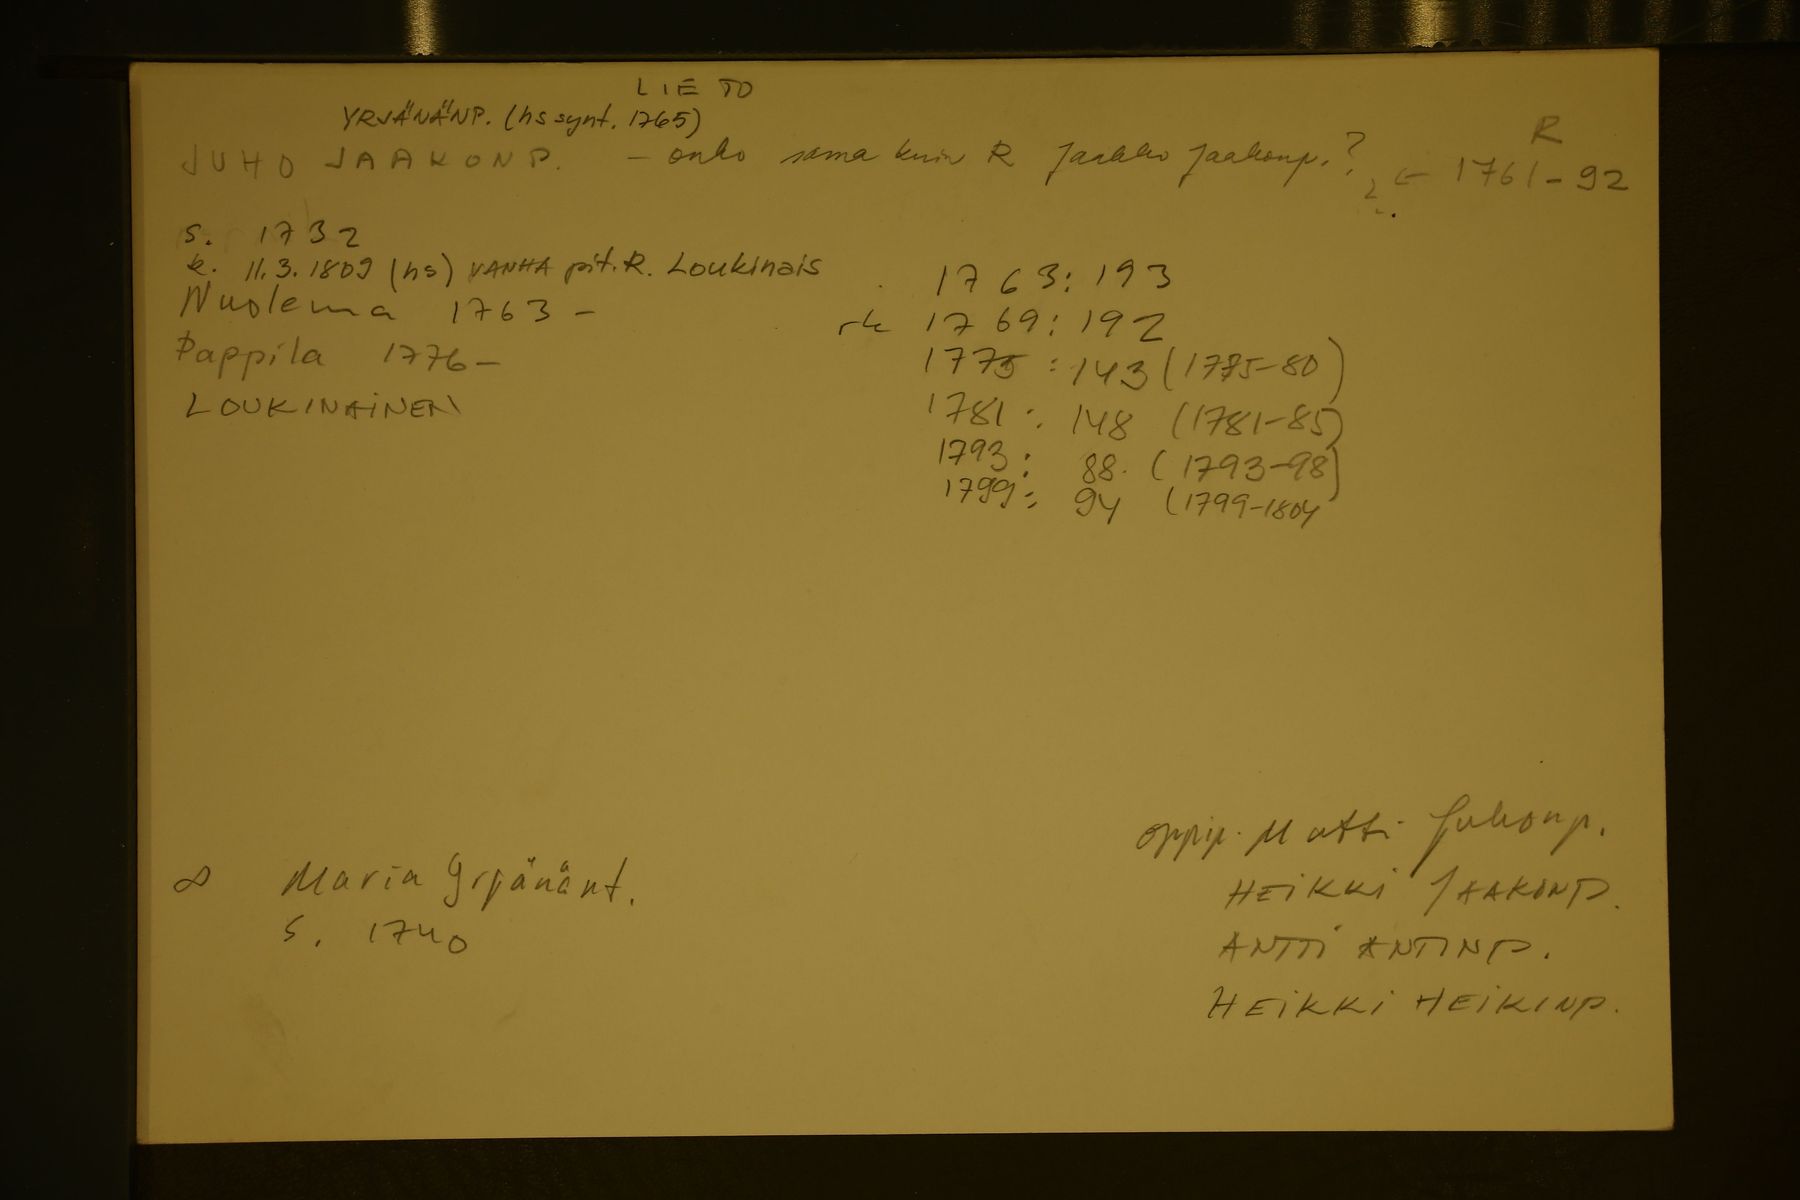 LIETO
YRJÄNÄNP. (hs synt. 1765)
JUHO JAAKONP. - onko sama kuin R Jaakko Jaakonp.? ? ← R 1761-92
s. 1732
k. 11.3.1809 (hs) VANHA pit. R. Loukinais
Nuolema 1763 -
Pappila 1776 -
LOUKINAINEN
1763: 193
rk 1769: 192
1775 : 143 (1775-80)
1781 : 148 (1781-85)
1793: 88. (1793-98)
1799: 94 (1799-1804
∞ Maria Yrjänänt.
s. 1740
oppip. Matti Juhonp.
HEIKKI JAAKONP.
ANTTI ANTINP.
HEIKKI HEIKINP.